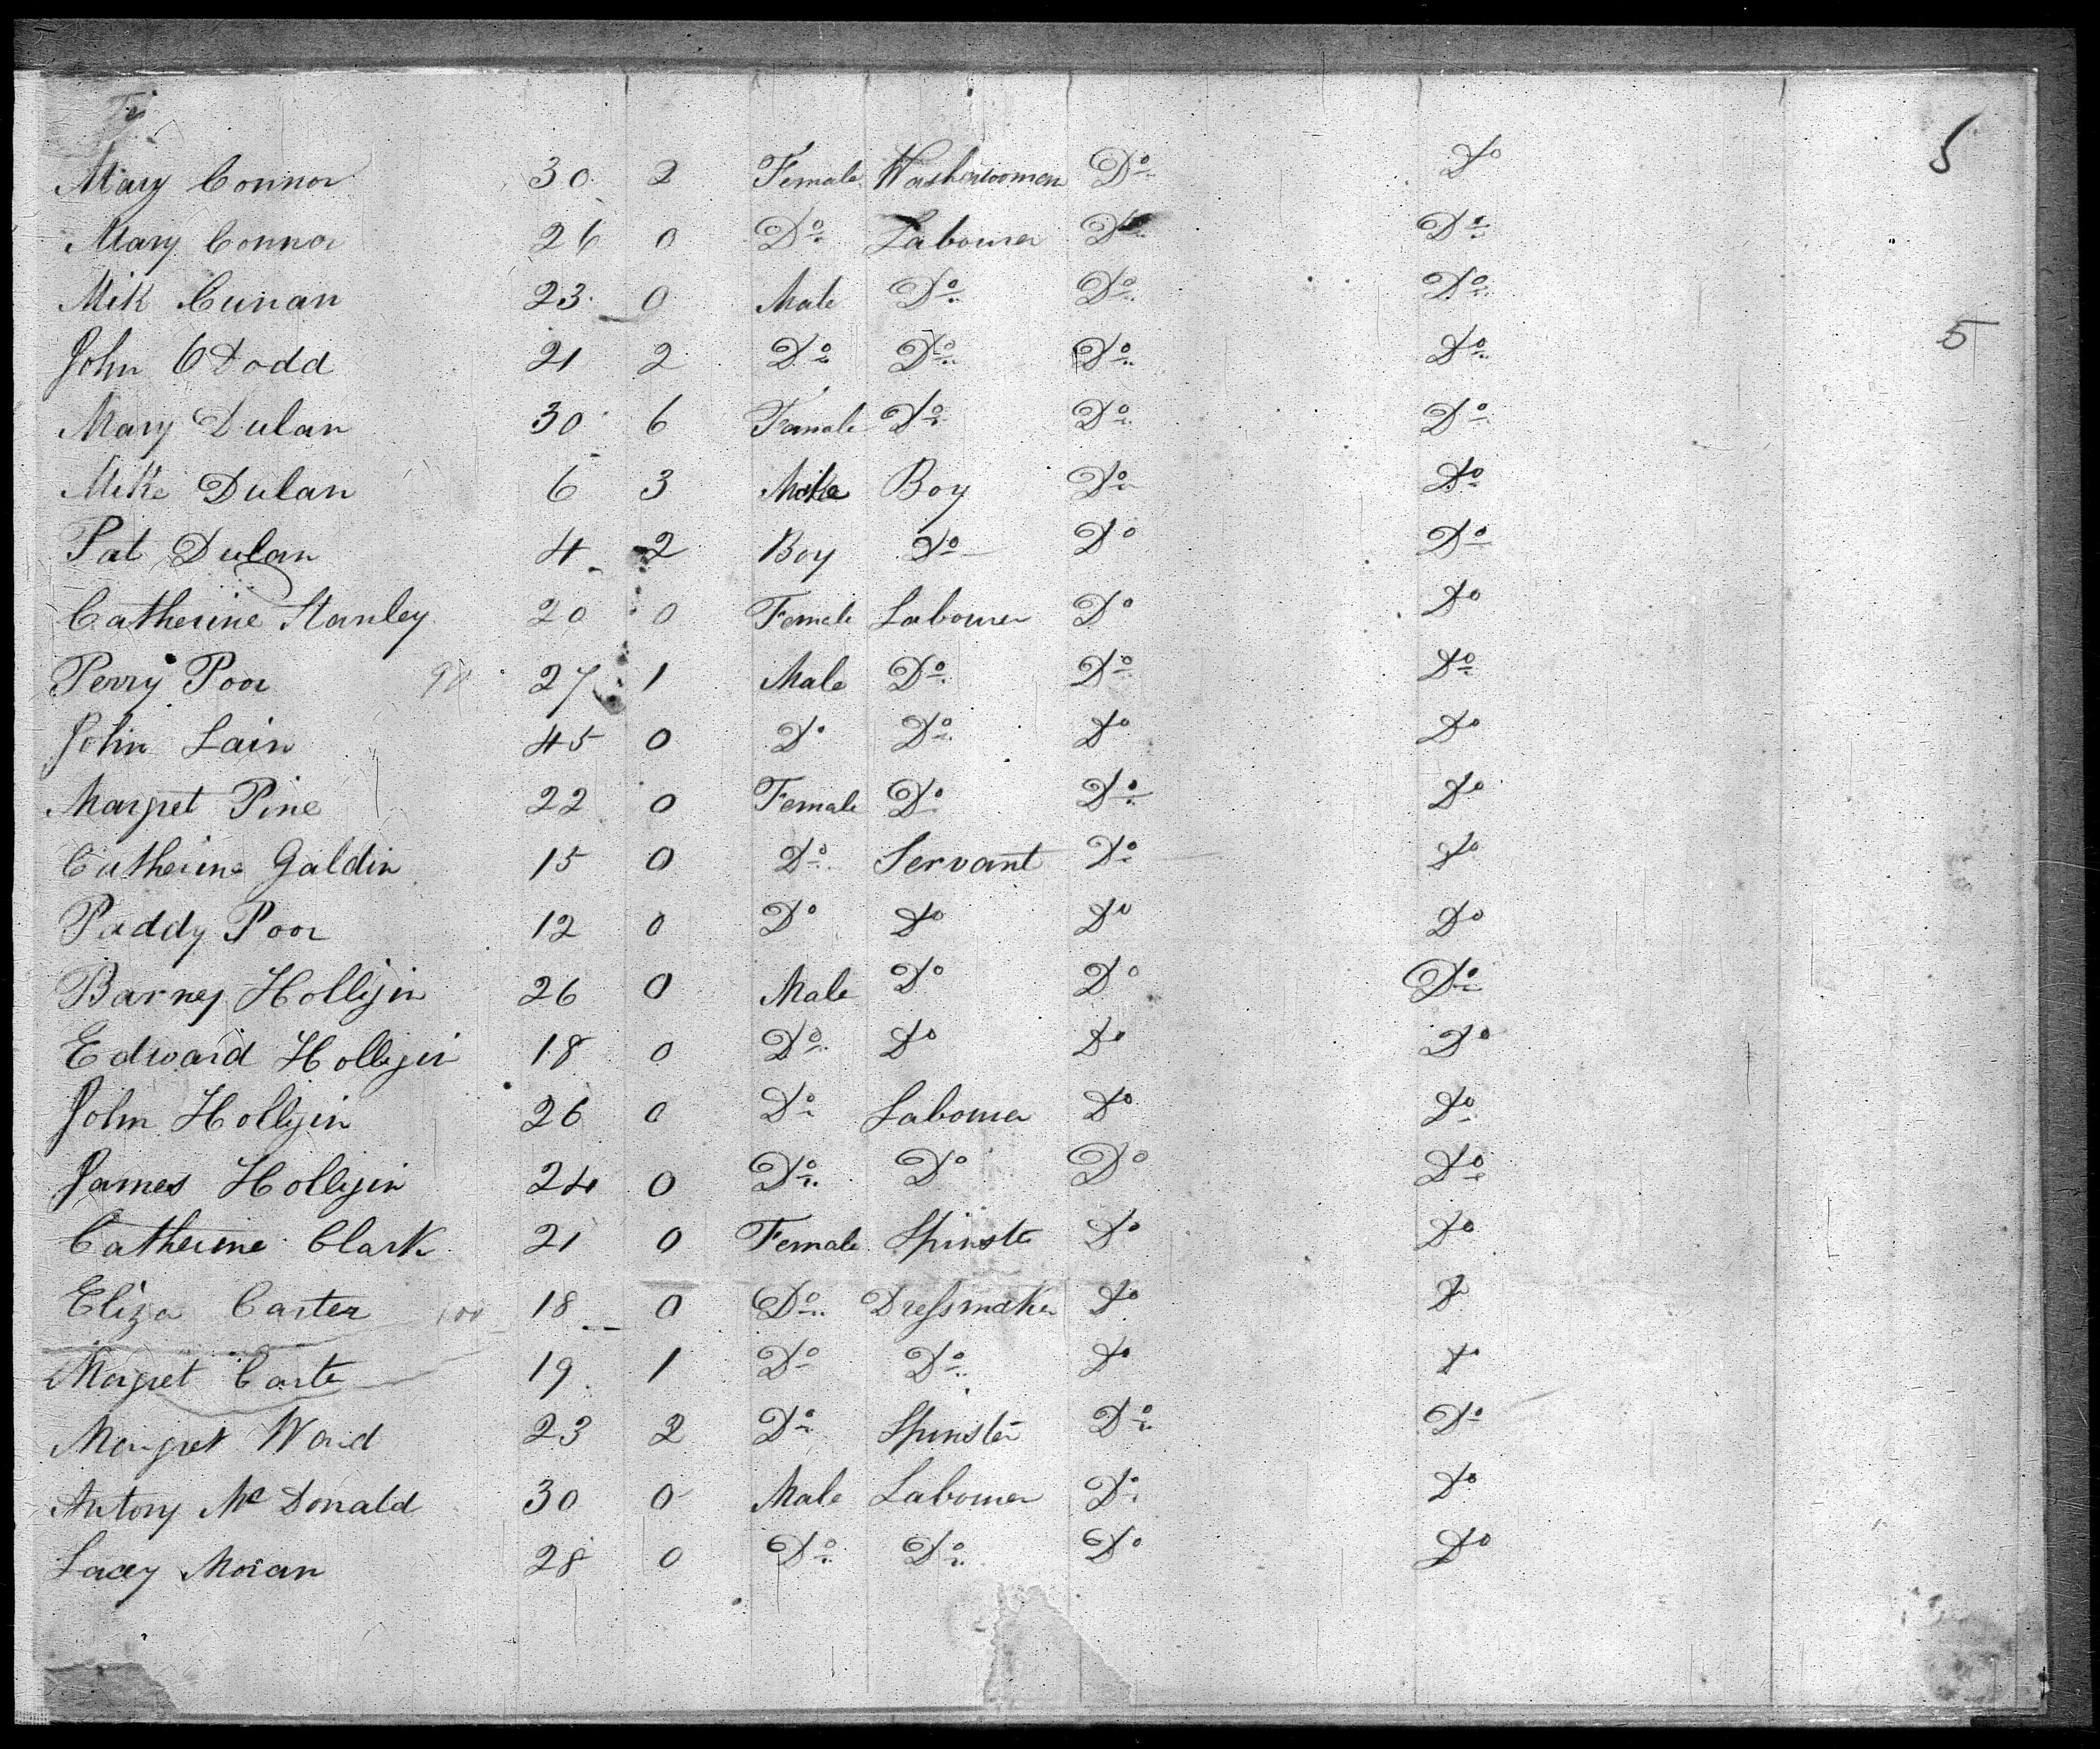 5
Mary Connor 30 2 Female Washerwoman Do Do
Mary Connor 26 0 Do Labourer Do Do
Mik Cunan 23 0 Male Do Do Do
John ODodd 21 2 Do Do Do Do 5
Mary Dulan 30 6 Female Do Do Do
Mike Dulan 6 3 Boy Do Do
Pat Dulan 4 2 Boy Do Do Do
Catherine Stanley 20 0 Female Labourer Do Do
Perry Poor 27 1 Male Do Do Do
John Lain 45 0 Do Do Do Do
Margret Pine 22 0 Female Do Do Do
Catherine Galdin 15 0 Do Servant Do Do
Paddy Poor 12 0 Do Do Do Do
Barney Hollijin 26 0 Male Do Do Do
Edward Hollijin 18 0 Do Do Do Do
John Hollijin 26 0 Do Labourer Do Do
James Hollijin 24 0 Do Do Do Do
Catherine Clark 21 0 Female Spinster Do Do
Eliza Carter 100 18 0 Do Dressmaker Do Do
Margret Carte 19 1 Do Do Do Do
Margret Ward 23 2 Do Spinster Do Do
Antony Mc Donald 30 0 Male Labourer Do Do
Lacey Moran 28 0 Do Do Do Do